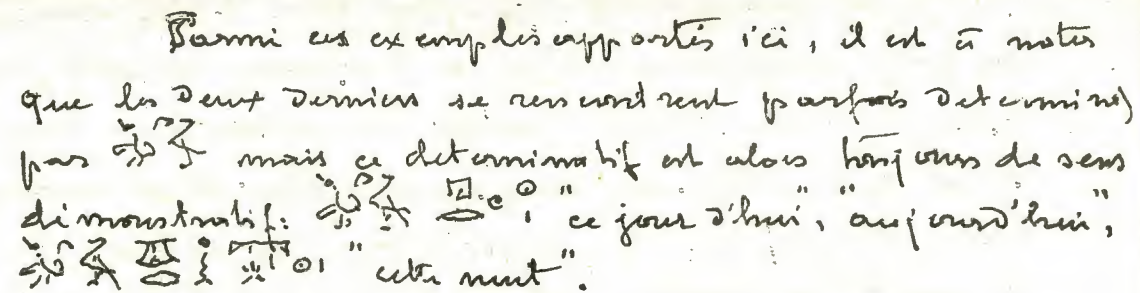 Parmi ces exemples apportés ici, il est à noter
que les deux derniers se rencontrent parfois determinés
par mais ce determinatif est alors toujours de sens
démonstratif: "ce jour d'hui", "aujourd'hui",
"cette nuit".